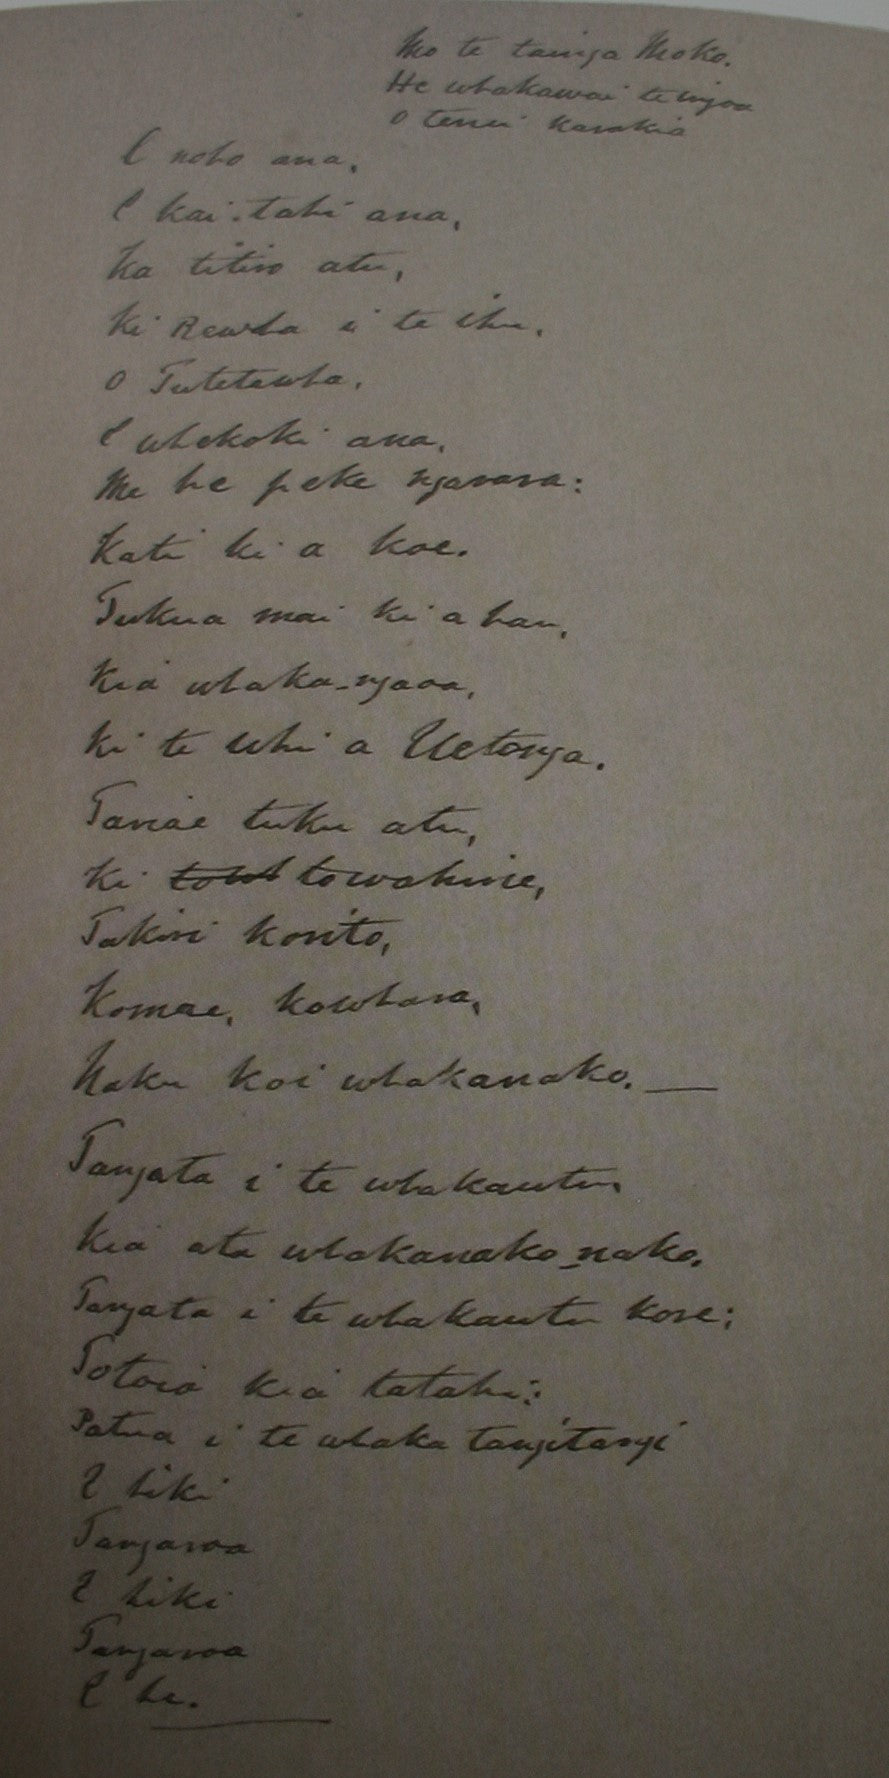 Mo te tainga Moko.
He whakawai te ingoa
o tenei karakia
E noho ana,
E kai-tahi ana,
Ka titiro atu,
Ki Rewha i te ihu,
O Tutetawha,
E whekoki ana,
Me he peke ngarara:
Kati ki a koe.
Tukua mai ki a hau,
Kia whaka-ngaoa,
Ki te Uhi a Uetonga.
Tariae tuku atu,
Ki towahine,
Takiri korito,
Komae, kowhara,
Naku koi whakanako. —
Tangata i te whakautu,
Kia ata whakanako-nako.
Tangata i te whakautu kore;
Totoia kia tatahi;
Patua i te whaka tangitangi
E hiki
Tangaroa
E hiki
Tangaroa
E he.